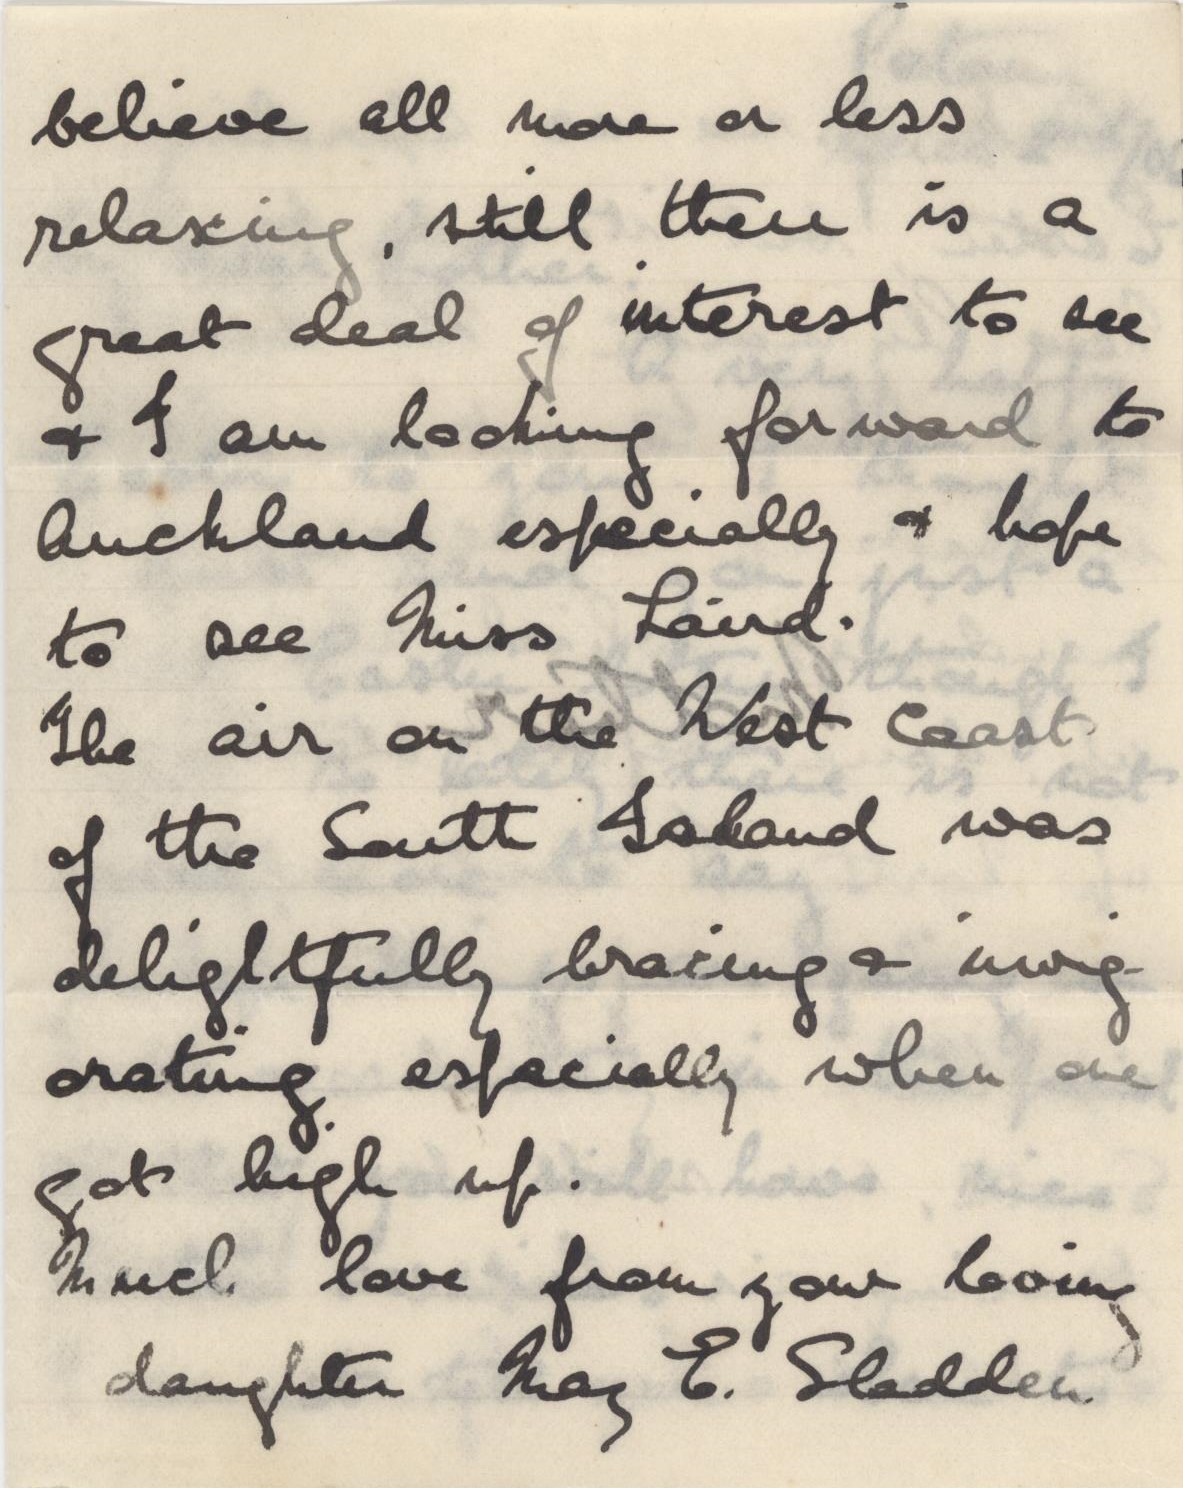 believe all more or less
relaxing, still there is a
great deal of interest to see
& I am looking forward to
Auckland especially & hope
to see Miss Laird.
The air on the West Coast
of the South Island was
delightfully bracing & invig-
orating especially when one
got high up.
Much love from your loving
daughter May E. Sladden.